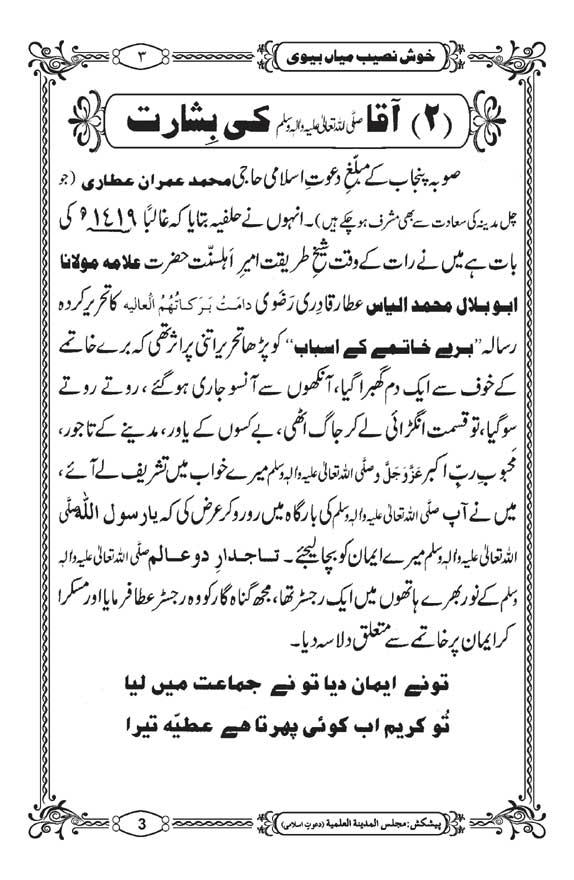 خوش نصیب میاں بیوی
۳
(۲) آقا صلی اللہ تعالیٰ علیہ واٰلہٖ وسلم کی بِشارت
صوبہ پنجاب کے مبلّغِ دعوتِ اسلامی حاجی محمد عمران عطاری (جو
چل مدینہ کی سعادت سے بھی مشرف ہو چکے ہیں)۔ انہوں نے حلفیہ بتایا کہ غالبًا ۱۴۱۹ھ کی
بات ہے میں نے رات کے وقت شیخِ طریقت امیرِ اَہلسنّت حضرت علامہ مولانا
ابو بلال محمد الیاس عطار قادِری رَضَوی دامَتْ بَرَکاتُہُمُ الْعالیہ کا تحریر کردہ
رسالہ ’’برے خاتمے کے اسباب‘‘ کو پڑھا تحریر اتنی پر اثر تھی کہ برے خاتمے
کے خوف سے ایک دم گھبرا گیا، آنکھوں سے آنسو جاری ہو گئے ، روتے روتے
سو گیا، تو قسمت انگڑائی لے کر جاگ اٹھی، بے کسوں کے یاور، مدینے کے تاجور،
مَحبوبِ ربِّ اکبر عَزَّوَجَلَّ و صلَّی اللہ تعالیٰ علیہ واٰلہٖ وسلم میرے خواب میں تشریف لے آئے،
میں نے آپ صلَّی اللہ تعالیٰ علیہ واٰلہٖ وسلم کی بارگاہ میں رو رو کر عرض کی کہ یا رسول اللہ صلَّی
اللہ تعالیٰ علیہ واٰلہٖ وسلم میرے ایمان کو بچا لیجئے۔ تاجدارِ دو عالم صلَّی اللہ تعالیٰ علیہ واٰلہٖ
وسلم کے نور بھرے ہاتھوں میں ایک رجسٹر تھا، مجھ گناہ گار کو وہ رجسٹر عطا فرمایا اور مسکرا
کر ایمان پر خاتمے سے متعلق دلاسہ دیا۔
تو نے ایمان دیا تو نے جماعت میں لیا
تُو کریم اب کوئی پھرتا ھے عطیّہ تیرا
پیشکش: مجلس المدینۃ العلمیۃ (دعوتِ اسلامی)
3